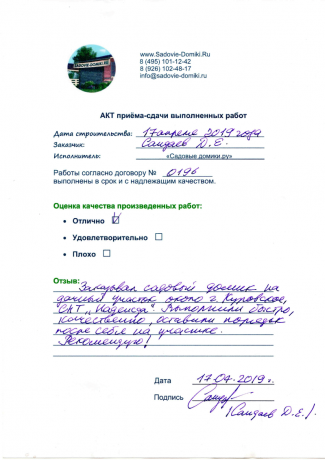 SADOVIE-DOMIKI.RU
www.Sadovie-Domiki.Ru
8 (495) 101-12-42
8 (926) 102-48-17
info@sadovie-domiki.ru
АКТ приёма-сдачи выполненных работ
Дата строительства: 17 апреля 2019 года
Заказчик: Саидаев Д.Е.
Исполнитель: «Садовые домики.ру»
Работы согласно договору № 0196
выполнены в срок и с надлежащим качеством.
Оценка качества произведенных работ:
• Отлично
• Удовлетворительно
• Плохо
Отзыв:
Заказывал садовой домик на
дачный участок около г. Куровское,
СНТ „Надежда". Выполнили быстро,
качественно, оставили порядок
после себя на участке.
Рекомендую!
Дата 17.04.2019г.
Подпись
(Саидаев Д.Е.)